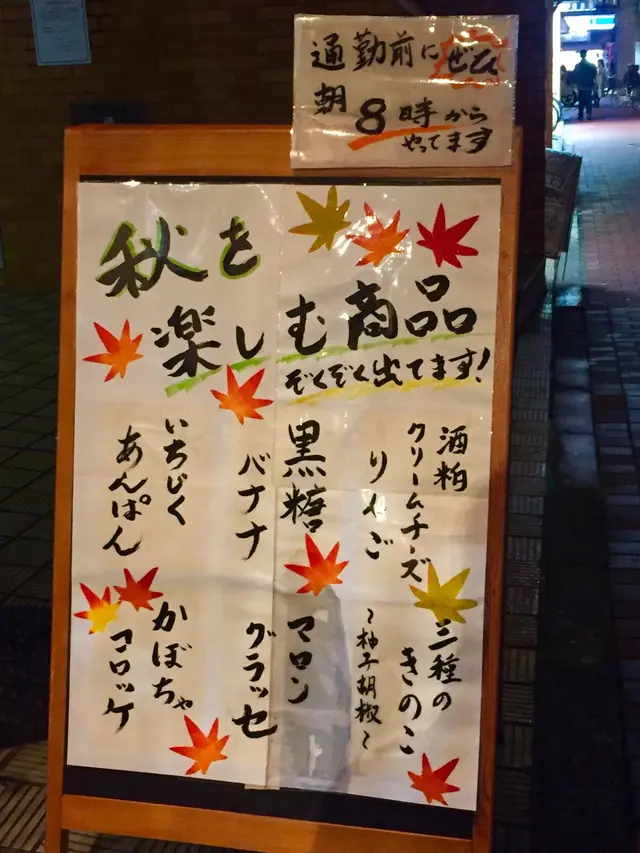 通勤前にぜひ
朝8時から
やってます
秋を
楽しむ商品
ぞくぞく出てます!
酒粕
クリームチーズ
りんご
黒糖
バナナ
いちじく
あんぱん
三種の
きのこ
~柚子胡椒~
マロン
グラッセ
かぼちゃ
コロッケ